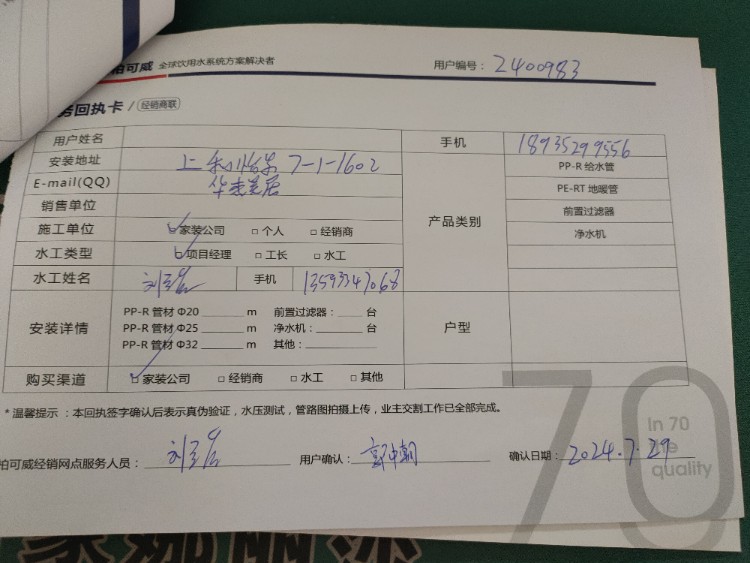 柏可威 全球饮用水系统方案解决者 用户编号： 2400983
务回执卡 / 经销商联
用户姓名 手机 18935299556
安装地址 7-1-1602 PP-R 给水管
E-mail(QQ) 产品类别 PE-RT 地暖管
销售单位 前置过滤器
施工单位 □家装公司 □ 个人 □ 经销商 净水机
水工类型 □项目经理 □ 工长 □ 水工
水工姓名 手机 13593347068
安装详情 PP-R 管材 Φ20 ______ m 前置过滤器： ____ 台 户型
PP-R 管材 Φ25 ______ m 净水机： ____ 台
PP-R 管材 Φ32 ______ m 其他： ____
购买渠道 □ 家装公司 □ 经销商 □ 水工 □ 其他
* 温馨提示 ：本回执签字确认后表示真伪验证，水压测试，管路图拍摄上传，业主交割工作已全部完成。
70
In 70
quality
柏可威经销网点服务人员： 用户确认： 确认日期： 2024.7.29